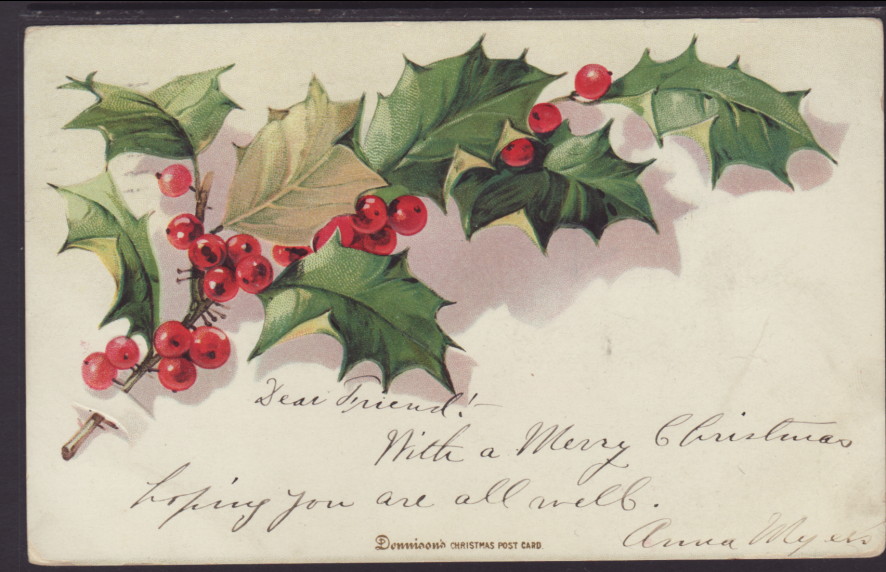 Dear Friend!-
With a Merry Christmas
hoping you are all well.
Anna Myers
Dennison's CHRISTMAS POST CARD